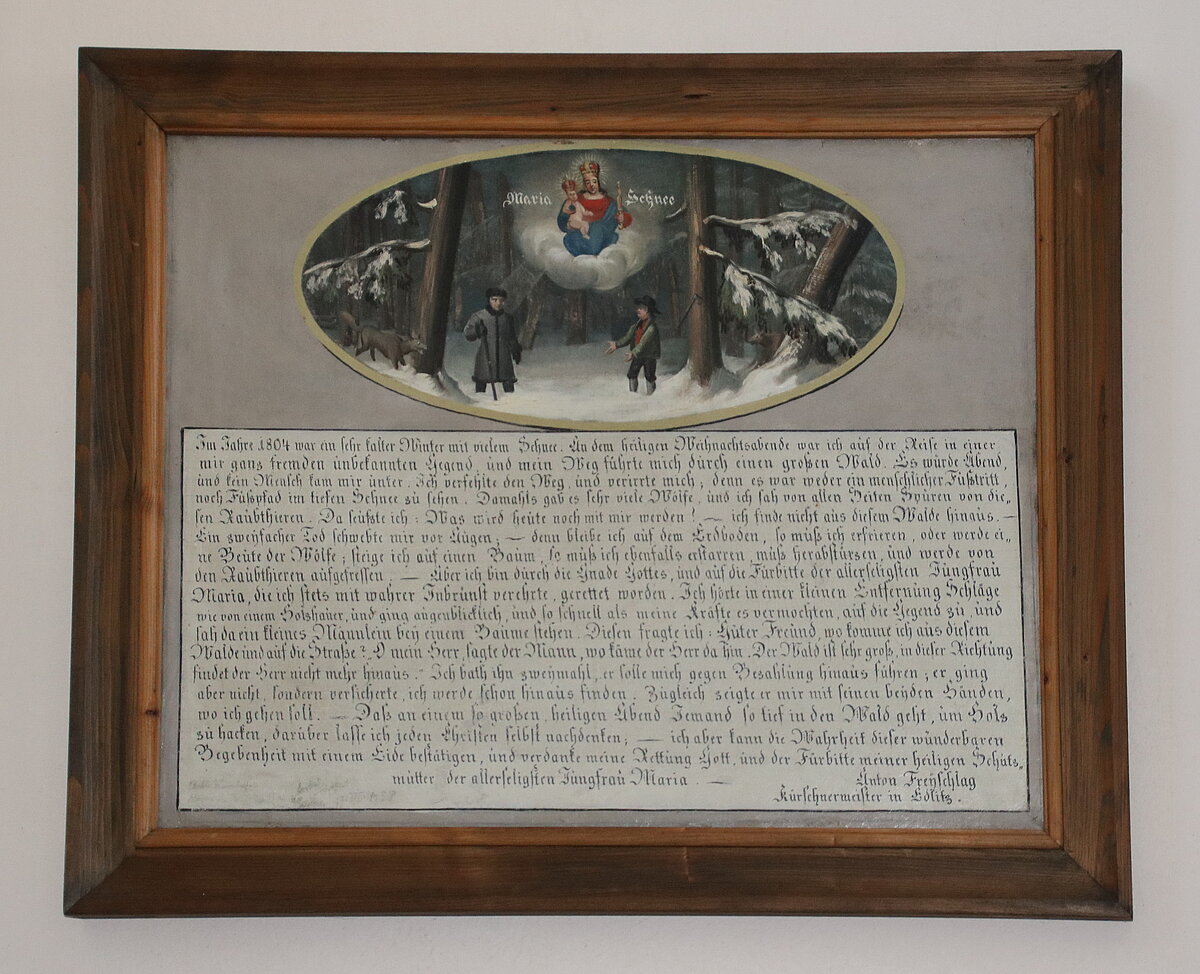 Maria Schnee
Im Jahre 1804 war ein sehr kalter Winter mit vielem Schnee. An dem heiligen Weihnachtsabende war ich auf der Reise in einer
mir ganz fremden unbekannten Gegend, und mein Weg führte mich durch einen großen Wald. Es wurde Abend,
und kein Mensch kam mir unter. Ich verfehlte den Weg, und verirrte mich; denn es war weder ein menschlicher Fußtritt,
noch Fußpfad im tiefen Schnee zu sehen. Damahls gab es sehr viele Wölfe, und ich sah von allen Seiten Spuren von die-
sen Raubthieren. Da seufzte ich: Was wird heute noch mit mir werden! — ich finde nicht aus diesem Walde hinaus. —
Ein zweyfacher Tod schwebte mir vor Augen; — denn bleibe ich auf dem Erdboden, so muß ich erfrieren, oder werde ei-
ne Beute der Wölfe; steige ich auf einen Baum, so muß ich ebenfalls erstarren, muß herabstürzen, und werde von
den Raubthieren aufgefressen. — Aber ich bin durch die Gnade Gottes, und auf die Fürbitte der allerseligsten Jungfrau
Maria, die ich stets mit wahrer Inbrunst verehrte, gerettet worden. Ich hörte in einer kleinen Entfernung Schläge
wie von einem Holzhauer, und ging augenblicklich, und so schnell als meine Kräfte es vermochten, auf die Gegend zu, und
sah da ein kleines Männlein bey einem Baume stehen. Diesen fragte ich: Guter Freund, wo komme ich aus diesem
Walde und auf die Straße?, O mein Herr, sagte der Mann, wo käme der Herr da hin. Der Wald ist sehr groß, in dieser Richtung
findet der Herr nicht mehr hinaus." Ich bath ihn zweymahl, er solle mich gegen Bezahlung hinaus führen; er ging
aber nicht, sondern versicherte, ich werde schon hinaus finden. Zugleich zeigte er mir mit seinen beyden Händen,
wo ich gehen soll. — Daß an einem so großen, heiligen Abend Jemand so tief in den Wald geht, um Holz
zu hacken, darüber lasse ich jeden Christen selbst nachdenken; — ich aber kann die Wahrheit dieser wunderbaren
Begebenheit mit einem Eide bestätigen, und verdanke meine Rettung Gott, und der Fürbitte meiner heiligen Schutz-
mutter der allerseligsten Jungfrau Maria. —
Anton Freyschlag
Kürschnermeister in Edlitz.